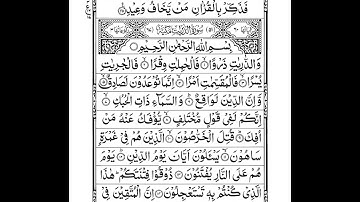 فَذَكِّرْ بِالْقُرْاٰنِ مَنْ يَّخَافُ وَعِيْدِ
سُوْرَةُ الذّٰرِيٰتِ مَكِّيَّةٌ
بِسْمِ اللّٰهِ الرَّحْمٰنِ الرَّحِيْمِ
وَالذّٰرِيٰتِ ذَرْوًا ۙ فَالْحٰمِلٰتِ وِقْرًا ۙ فَالْجٰرِيٰتِ
يُسْرًا ۙ فَالْمُقَسِّمٰتِ اَمْرًا ۙ اِنَّمَا تُوْعَدُوْنَ لَصَادِقٌ ۙ
وَّاِنَّ الدِّيْنَ لَوَاقِعٌ ؕ وَالسَّمَآءِ ذَاتِ الْحُبُكِ ۙ
اِنَّكُمْ لَفِيْ قَوْلٍ مُّخْتَلِفٍ ۙ يُّؤْفَكُ عَنْهُ مَنْ
اُفِكَ ؕ قُتِلَ الْخَرّٰصُوْنَ ۙ الَّذِيْنَ هُمْ فِيْ غَمْرَةٍ
سَاهُوْنَ ۙ يَسْـَٔلُوْنَ اَيَّانَ يَوْمُ الدِّيْنِ ؕ يَوْمَ
هُمْ عَلَى النَّارِ يُفْتَنُوْنَ ذُوْقُوْا فِتْنَتَكُمْ ؕ هٰذَا
الَّذِيْ كُنْتُمْ بِهٖ تَسْتَعْجِلُوْنَ اِنَّ الْمُتَّقِيْنَ فِيْ